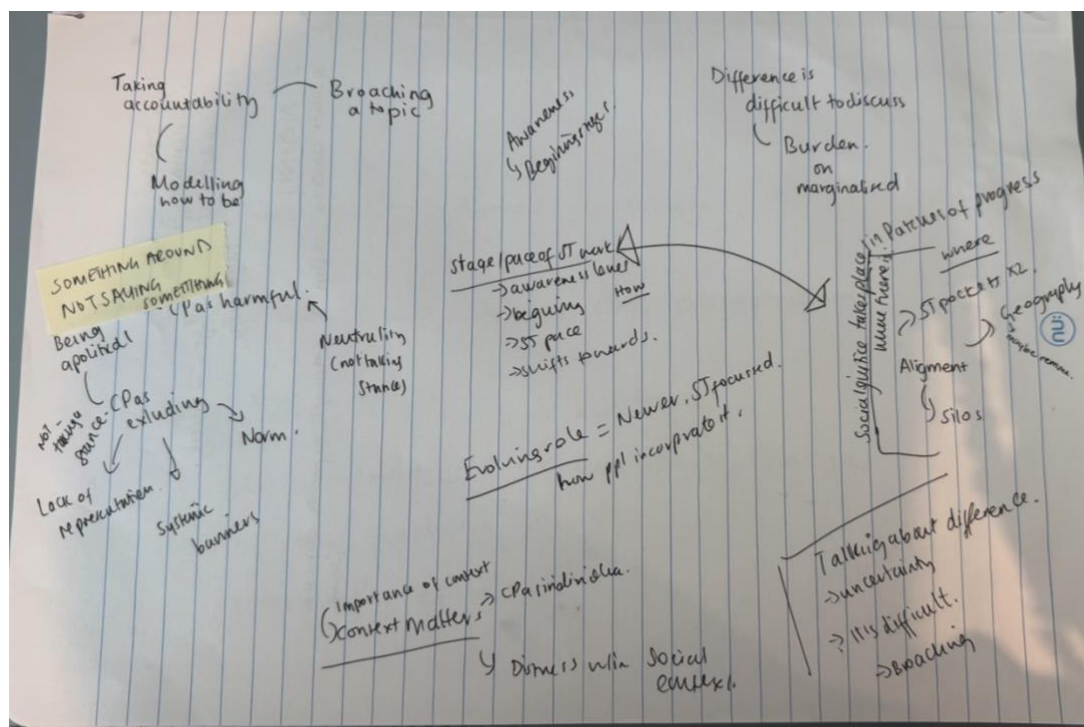 Taking
accountability
Broaching
a topic
Modelling
how to be
SOMETHING AROUND
NOT SAYING SOMETHING
Being
apolitical
CP as harmful.
Neutrality
(not taking
stances)
Not
taking a
stance
CP as
exluding
Norm.
Lack of
representation.
Systemic
barriers
Awareness
Stage/pace of SJ work
→ awareness level
How
→ SJ pace
→ shifts towards.
Evolving role = Newer, SJ focussed.
how ppl incorporate it.
Importance of context
context matters
→ CP as individual.
Distress w/in Social
context.
Difference is
difficult to discuss
Burden
on
marginalised
Social justice takes place in Patches of progress
where there is
where
→ SJ pockets x2
Geography
Aligment
Silos
Talking about difference.
→ uncertainty
→ It is difficult.
→ Broaching